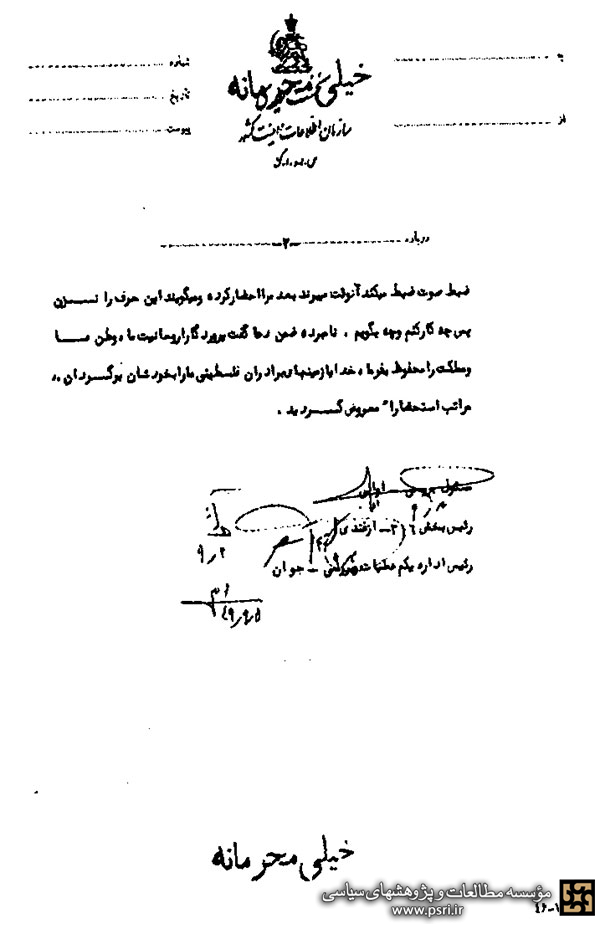 خیلی محرمانه
سازمان اطلاعات و امنیت کشور
س.ا.و.ا.ک
به
از
شماره
تاریخ
پیوست
درباره
-۲-
ضبط صوت ضبط میکند آنوقت میبرند بعد مرا احضار کرده و میگویند این حرف را نزن
پس چه کار کنم وچه بگویم . نامبرده ضمن دعا گفت پروردگارا روحانیت ما ، وطن ما
ومملکت را محفوظ بفرما ، خدایا زمینهای برادران فلسطینی ما را بخودشان برگردان ..
مراتب استحضارا" معروض گردید .
رئیس بخش ۳۱۶ - ازغندی
رئیس اداره یکم عملیات - جوان
۴۹/۹/۵
خیلی محرمانه
موسسه مطالعات و پژوهشهای سیاسی
www.psri.ir